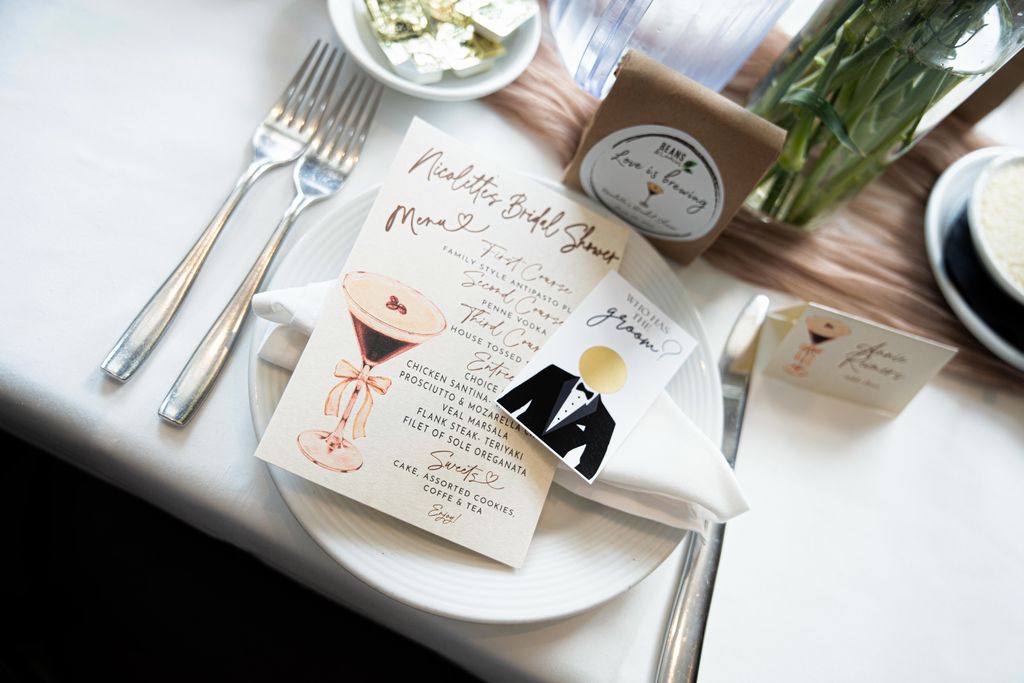 Nicolette's Bridal Shower
Menu
First Course
FAMILY STYLE ANTIPASTO
Second Course
PENNE VODKA
Third
HOUSE TOSSED
CHOICE
CHICKEN SANTINA
PROSCIUTTO & MOZARELLA
VEAL MARSALA
FLANK STEAK, TERIYAKI
FILET OF SOLE OREGANATA
Sweets
CAKE, ASSORTED COOKIES,
COFFE & TEA
Enjoy!
WHO HAS
THE
groom?
BEANS
Love is brewing